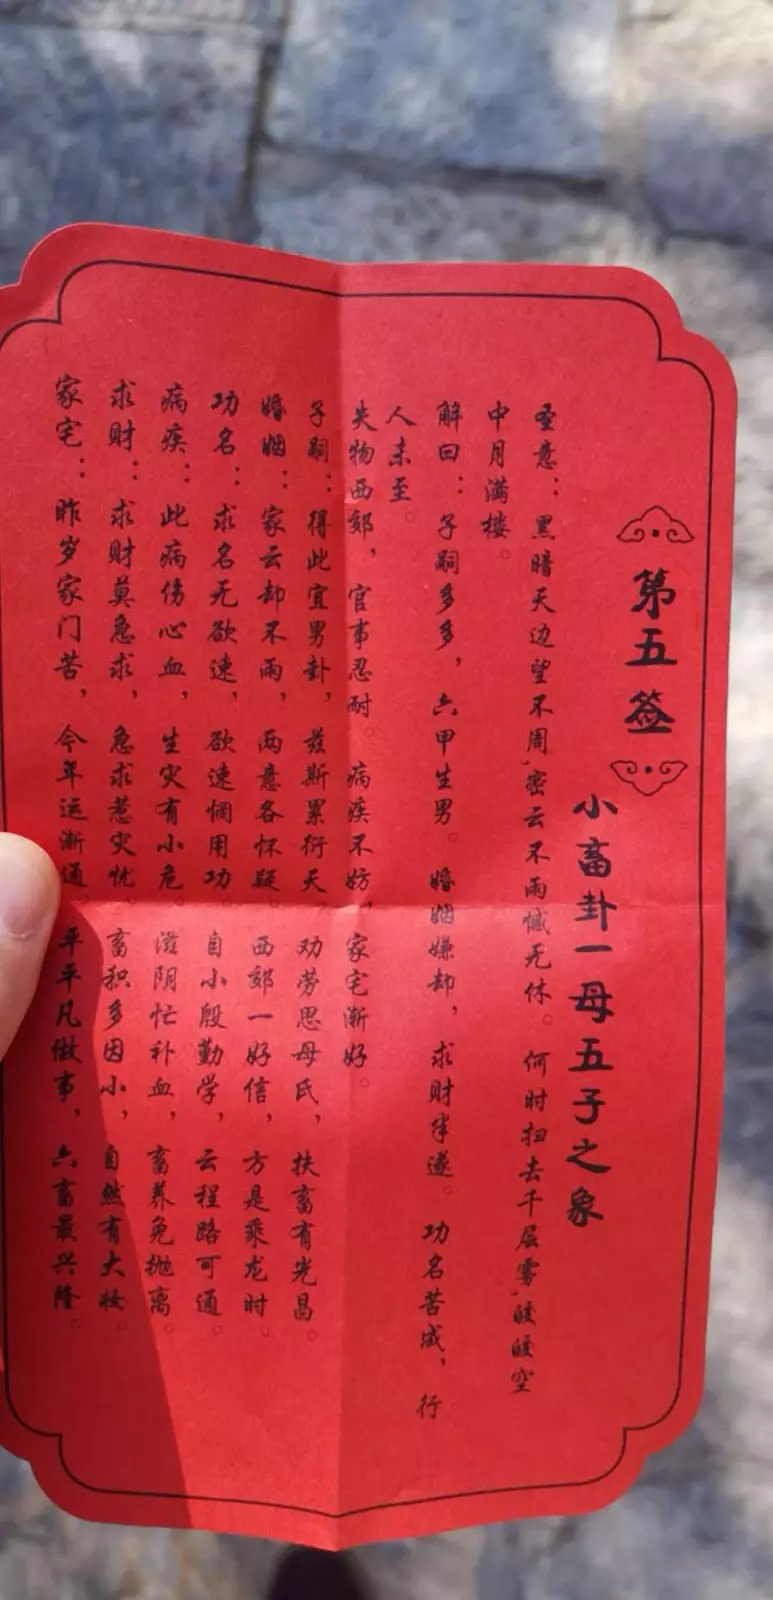 第五签
小畜卦一母五子之象
圣意：黑暗天边望不周,密云不雨憾无休。何时扫去千层雾,皎皎空
中月满楼。
解曰：子嗣多多，六甲生男。婚姻嫌却，求财半遂。功名苦成，行
人未至。
失物西郊，官事忍耐。病疾不妨，家宅渐好。
子嗣：得此宜男卦，兹斯累衍天。劝劳思母氏，扶畜有光昌。
婚姻：家云却不雨，两意各怀疑。西郊一好信，方是乘龙时。
功名：求名无欲速，欲速惘用功。自小殷勤学，云程路可通。
病疾：此病伤心血，生灾有小危。滋阴忙补血，畜养免抛离。
求财：求财莫急求，急求惹灾忧。畜积多因小，自然有大妝。
家宅：昨岁家门苦，今年运渐通。平平凡做事，六畜最兴隆。